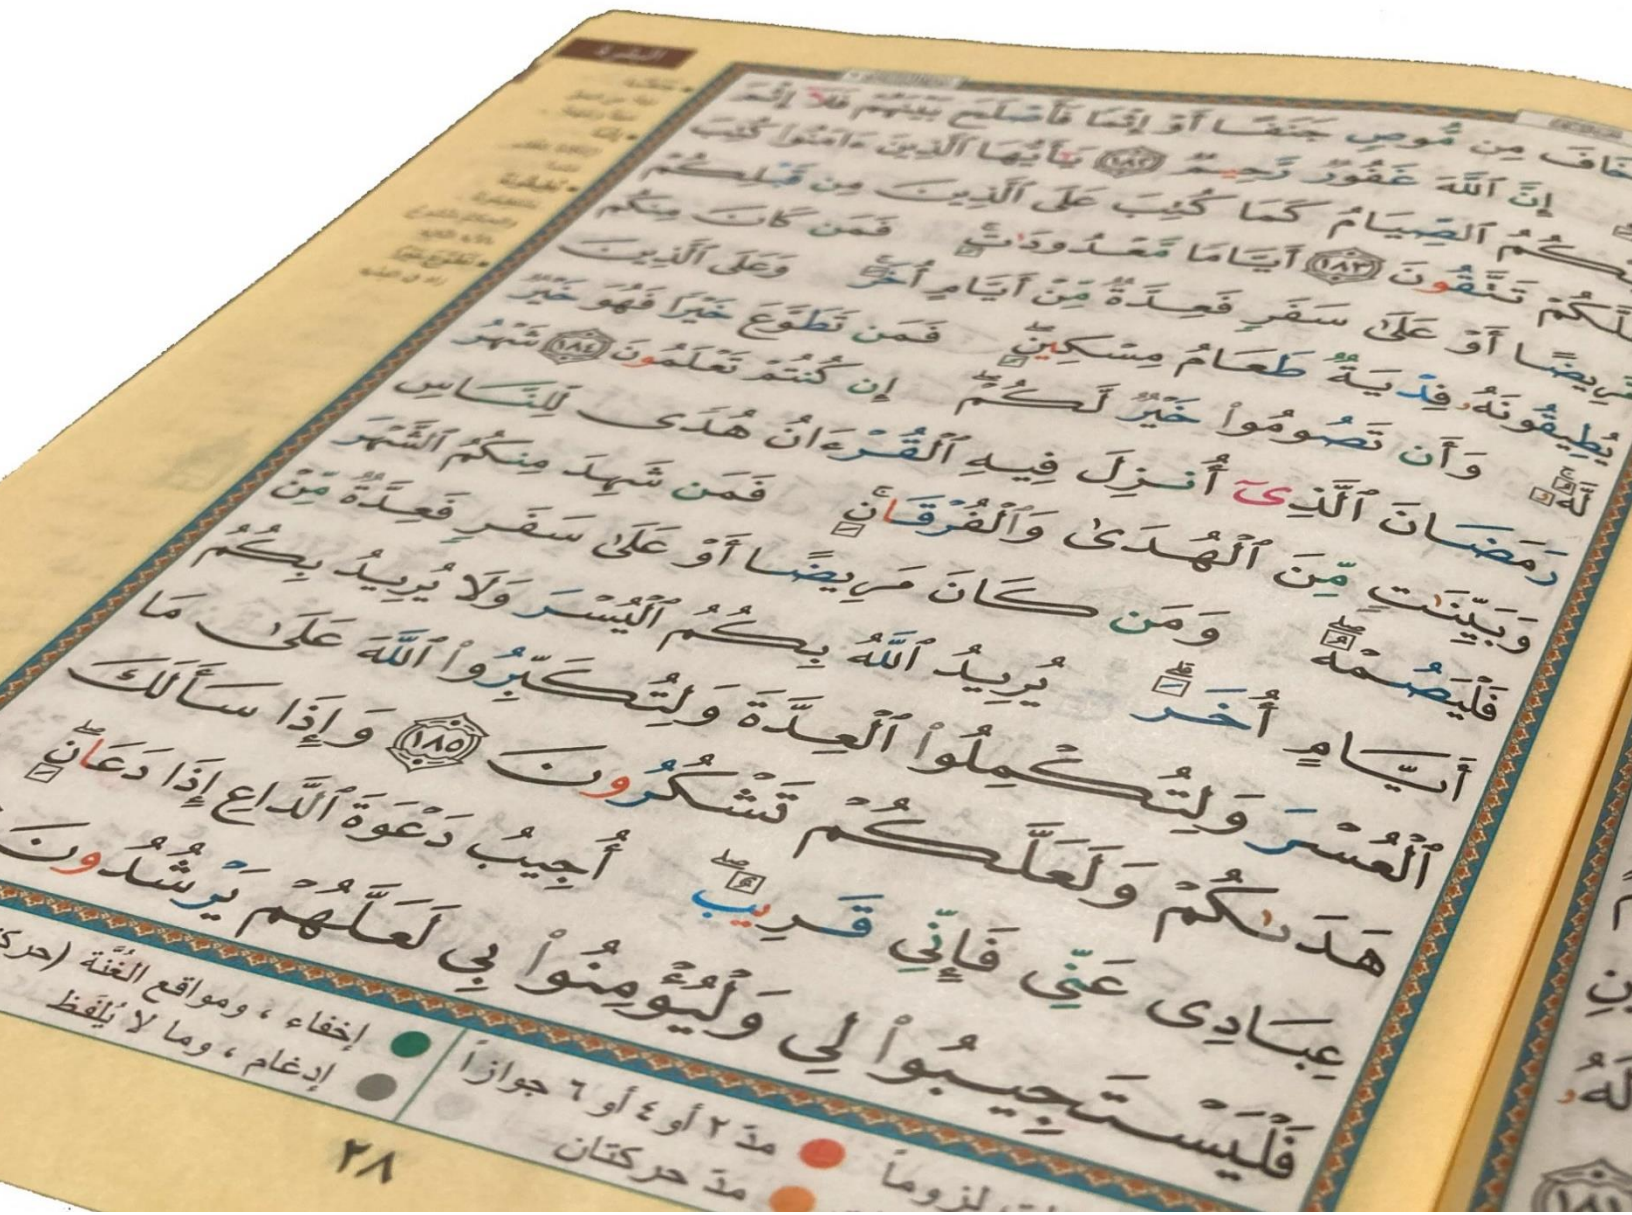 البقرة
مِن مُّوصٍ جَنَفًا أَوْ إِثْمًا فَأَصْلَحَ بَيْنَهُمْ فَلَآ إِثْمَ
إِنَّ ٱللَّهَ غَفُورٌ رَّحِيمٌ ١٨٢ يَٰٓأَيُّهَا ٱلَّذِينَ ءَامَنُوا۟ كُتِبَ
ٱلصِّيَامُ كَمَا كُتِبَ عَلَى ٱلَّذِينَ مِن قَبْلِكُمْ
تَتَّقُونَ ١٨٣ أَيَّامًا مَّعْدُودَٰتٍ فَمَن كَانَ مِنكُم
مَّرِيضًا أَوْ عَلَىٰ سَفَرٍ فَعِدَّةٌ مِّنْ أَيَّامٍ أُخَرَ وَعَلَى ٱلَّذِينَ
يُطِيقُونَهُۥ فِدْيَةٌ طَعَامُ مِسْكِينٍ فَمَن تَطَوَّعَ خَيْرًا فَهُوَ خَيْرٌ
لَّهُۥ وَأَن تَصُومُوا۟ خَيْرٌ لَّكُمْ إِن كُنتُمْ تَعْلَمُونَ ١٨٤ شَهْرُ
رَمَضَانَ ٱلَّذِىٓ أُنزِلَ فِيهِ ٱلْقُرْءَانُ هُدًى لِّلنَّاسِ
وَبَيِّنَٰتٍ مِّنَ ٱلْهُدَىٰ وَٱلْفُرْقَانِ فَمَن شَهِدَ مِنكُمُ ٱلشَّهْرَ
فَلْيَصُمْهُ وَمَن كَانَ مَرِيضًا أَوْ عَلَىٰ سَفَرٍ فَعِدَّةٌ مِّنْ
أَيَّامٍ أُخَرَ يُرِيدُ ٱللَّهُ بِكُمُ ٱلْيُسْرَ وَلَا يُرِيدُ بِكُمُ
ٱلْعُسْرَ وَلِتُكْمِلُوا۟ ٱلْعِدَّةَ وَلِتُكَبِّرُوا۟ ٱللَّهَ عَلَىٰ مَا
هَدَىٰكُمْ وَلَعَلَّكُمْ تَشْكُرُونَ ١٨٥ وَإِذَا سَأَلَكَ
عِبَادِى عَنِّى فَإِنِّى قَرِيبٌ أُجِيبُ دَعْوَةَ ٱلدَّاعِ إِذَا دَعَانِ
فَلْيَسْتَجِيبُوا۟ لِى وَلْيُؤْمِنُوا۟ بِى لَعَلَّهُمْ يَرْشُدُونَ
لزوماً
مدّ ٢ أو ٤ أو ٦ جوازاً
مدّ حركتان
إخفاء ، ومواقع الغُنَّة
إدغام ، وما لا يُلفَظ
٢٨
لَهُۥ